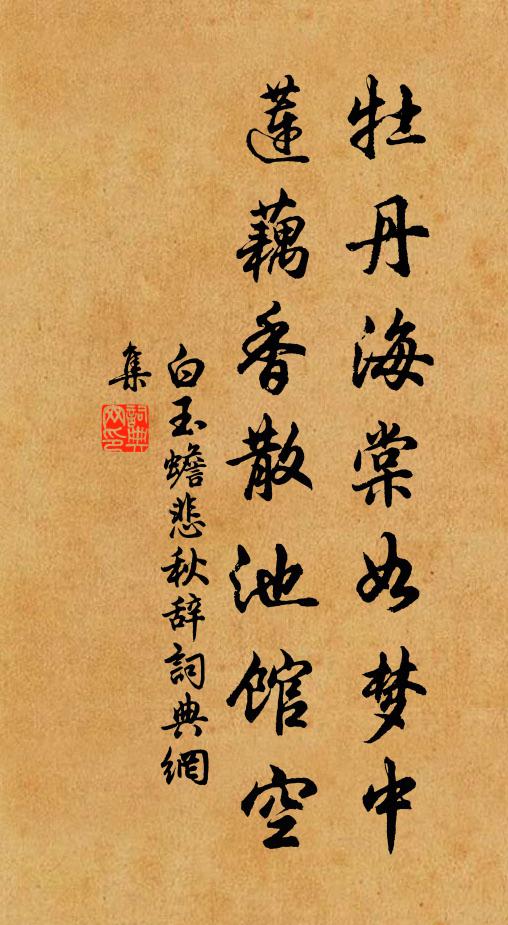 牡丹海棠如梦中
莲藕香散池馆空
白玉蟾悲秋辞詞典網
集
詞典